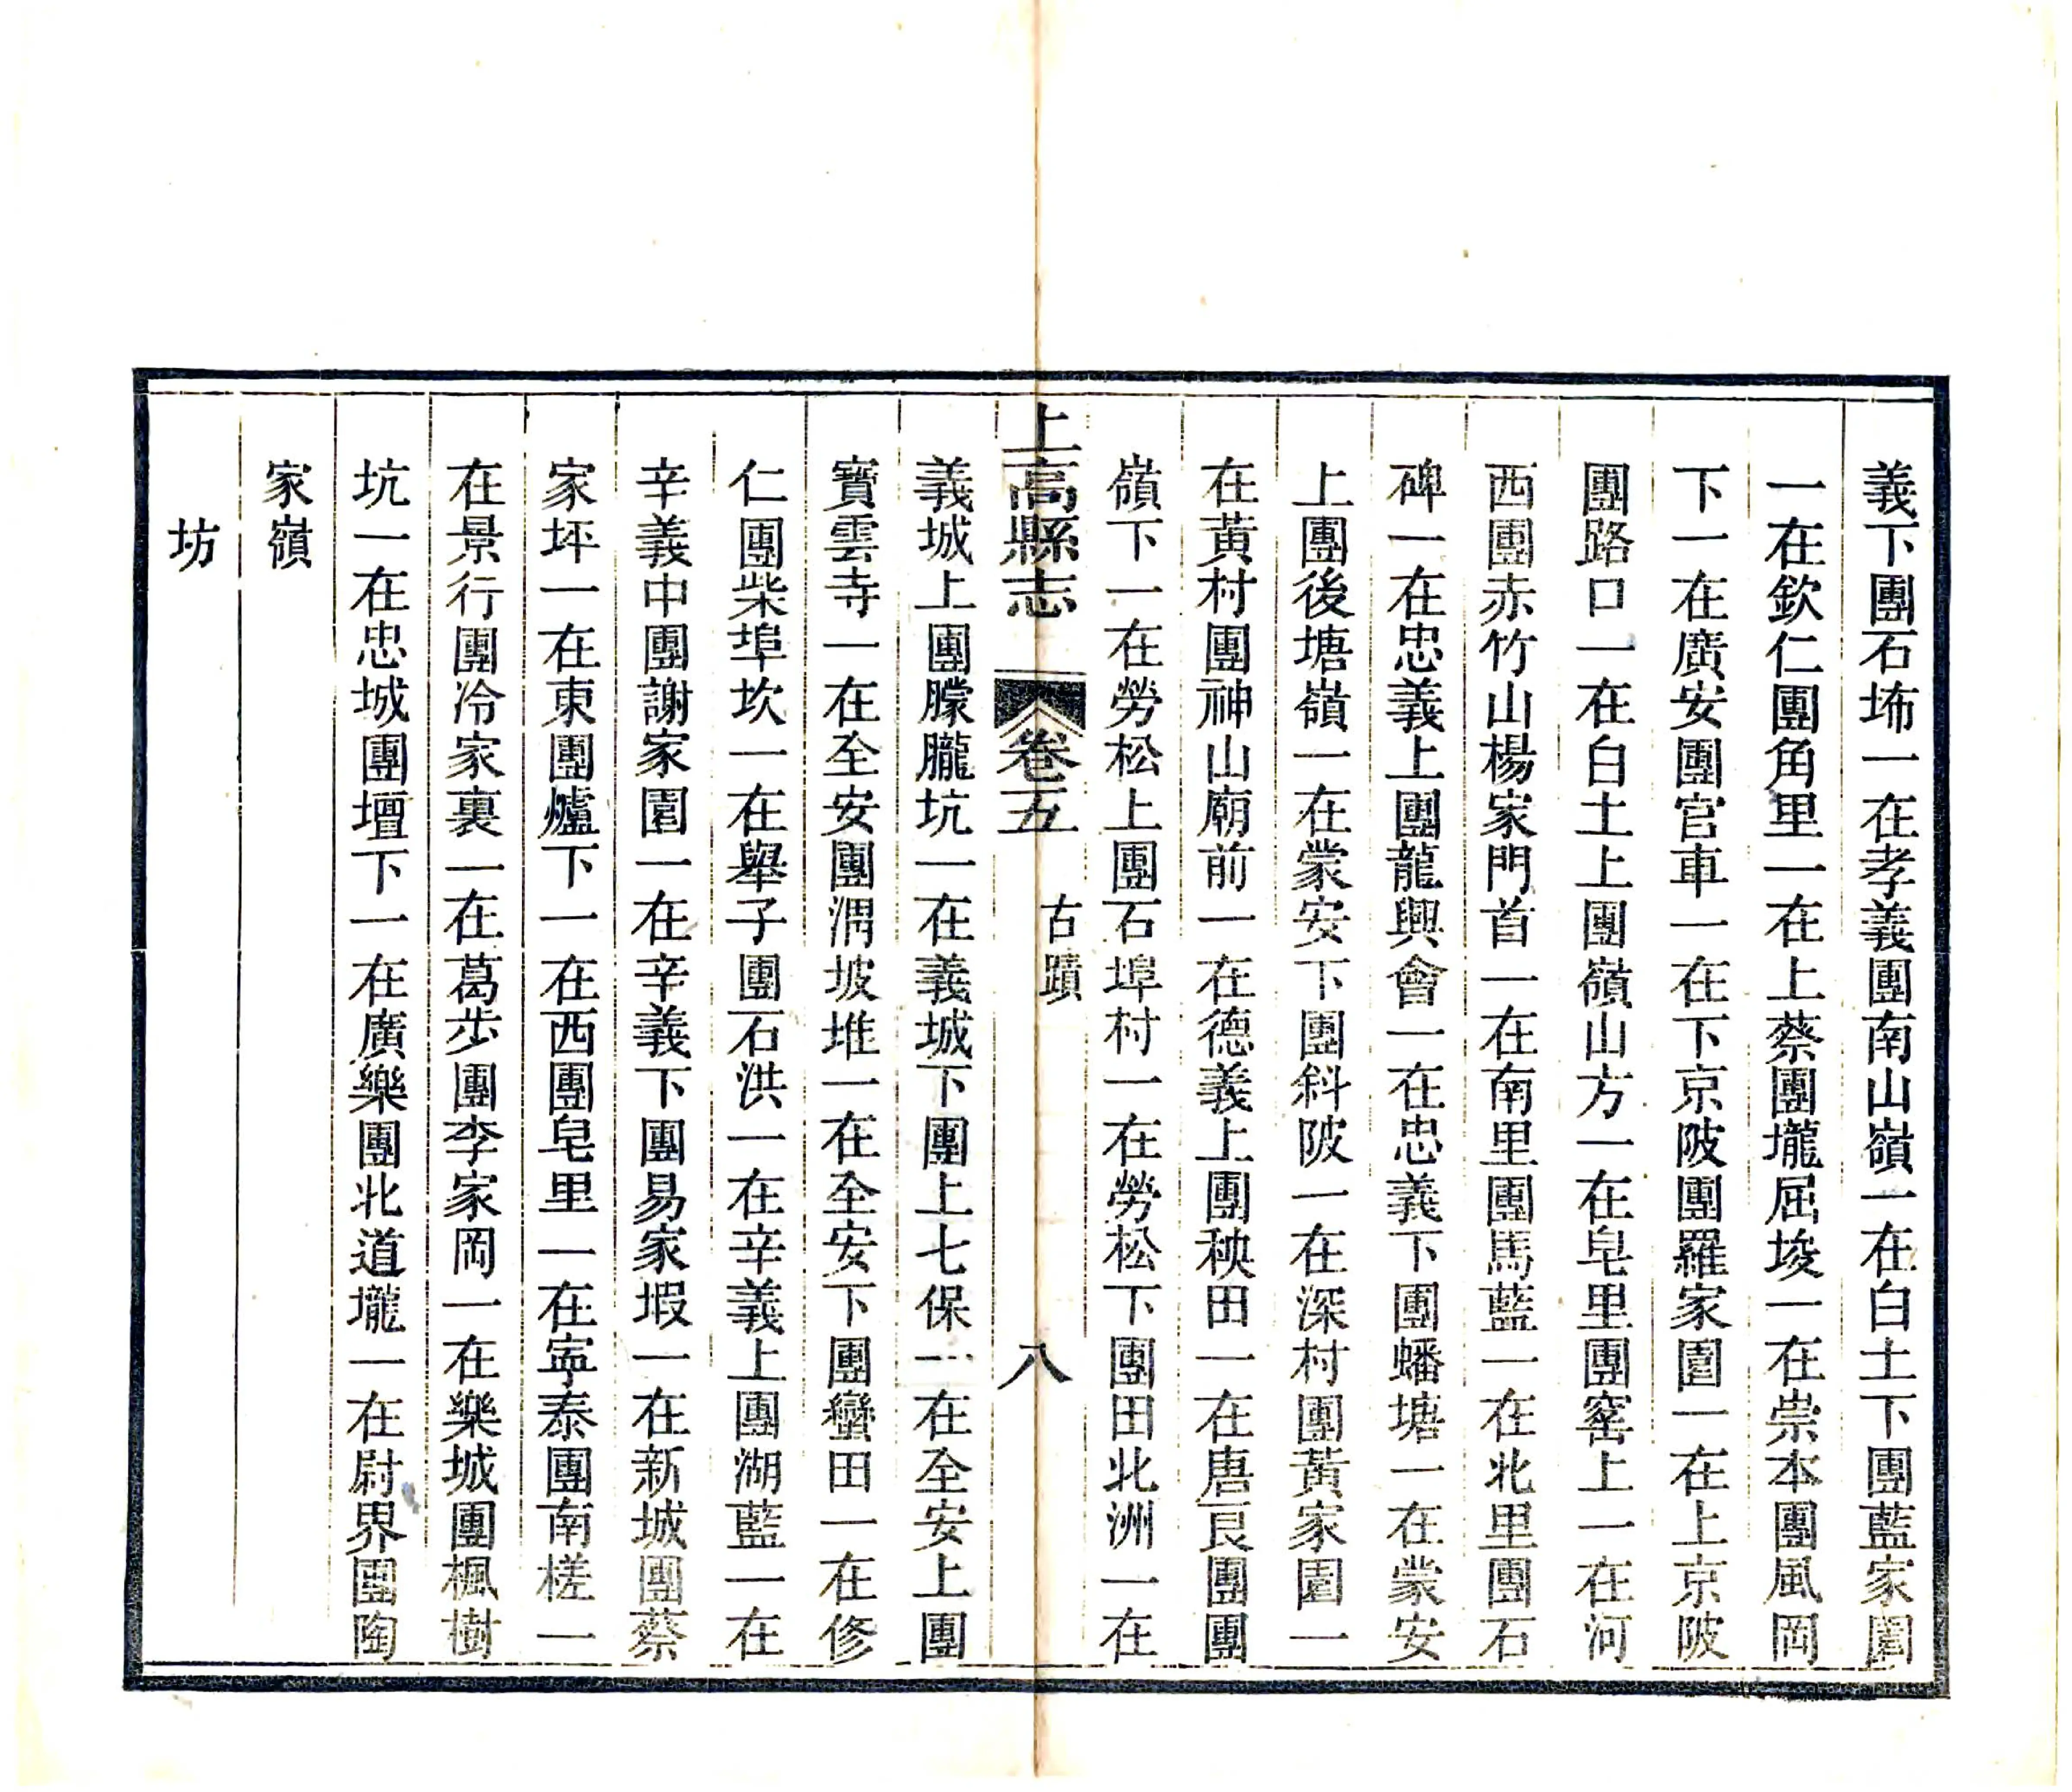 義下團石㘵一在孝義團南山嶺一在白土下團藍家園
一在欽仁團角里一在上蔡團壠屈埈一在崇本團風岡
下一在廣安團官車一在下京陂團羅家園一在上京陂
團路口一在白土上團嶺山方一在皂里團窰上一在河
西團赤竹山楊家門首一在南里團馬藍一在北里團石
碑一在忠義上團龍興會一在忠義下團蟠塘一在蒙安
上團後塘嶺一在蒙安下團斜陂一在深村團黃家園一
在黃村團神山廟前一在德義上團秧田一在唐良團團
嶺下一在勞松上團石埠村一在勞松下團田北洲一在
上高縣志 卷五 古蹟 八
義城上團朦朧坑一在義城下團上七保一在全安上團
寶雲寺一在全安團渭坡堆一在全安下團蠻田一在修
仁團柴埠坎一在舉子團石洪一在辛義上團湖藍一在
辛義中團謝家園一在辛義下團易家塅一在新城團蔡
家坏一在東團爐下一在西團皂里一在寧泰團南槎一
在景行團冷家裏一在葛步團李家岡一在樂城團楓樹
坑一在忠城團壇下一在廣樂團北道壠一在尉界團陶
家嶺
坊